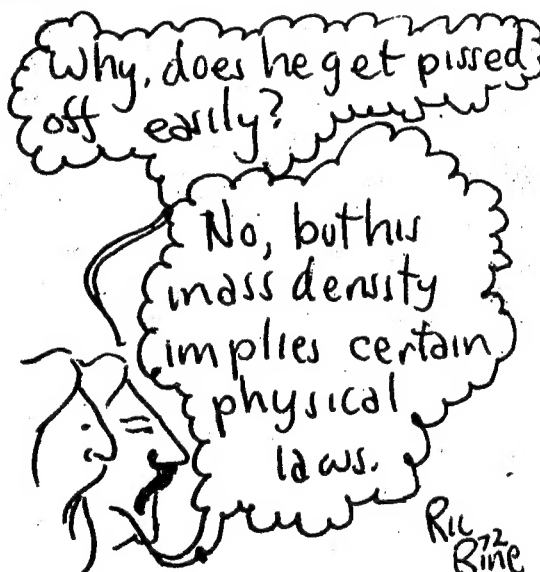 Why, does he get pissed
off easily?
No, but his
mass density
implies certain
physical
laws.
Ric
72
Bine